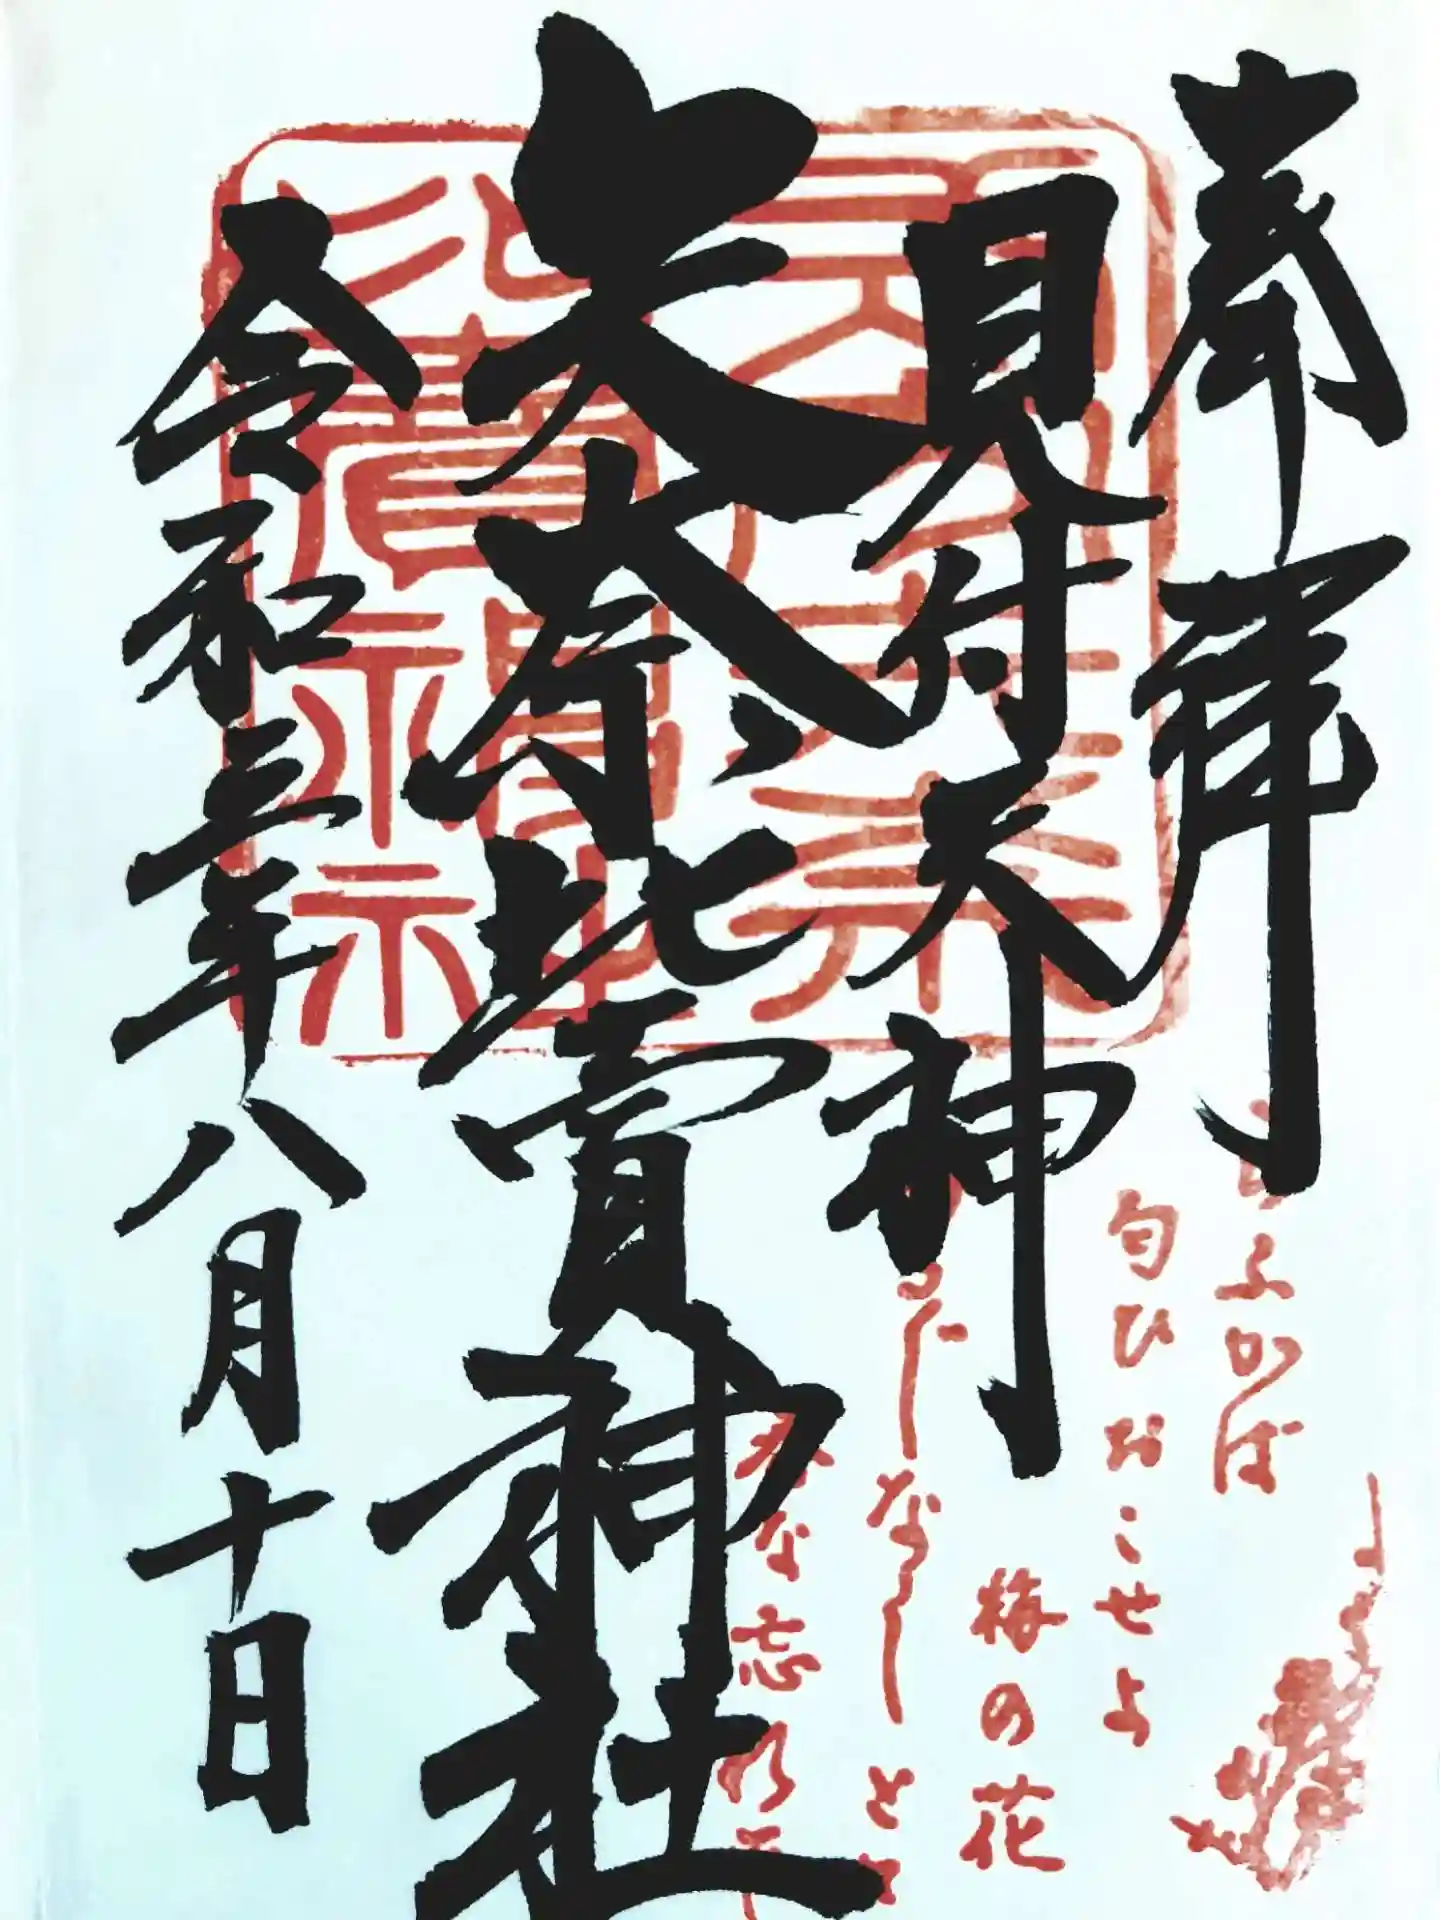 奉拝
見付天神
矢奈比賣神社
令和三年八月十日
ふかば
匂ひおこせよ
梅の花
るじなしとて
な忘れそ